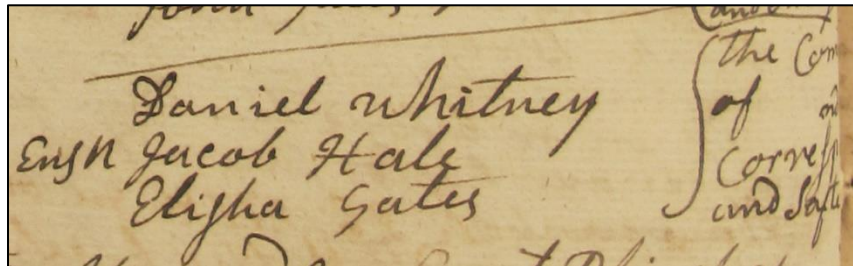 Daniel Whitney
Ensn Jacob Hale
Elisha Gates
the Com
of
Corresp
and Safte